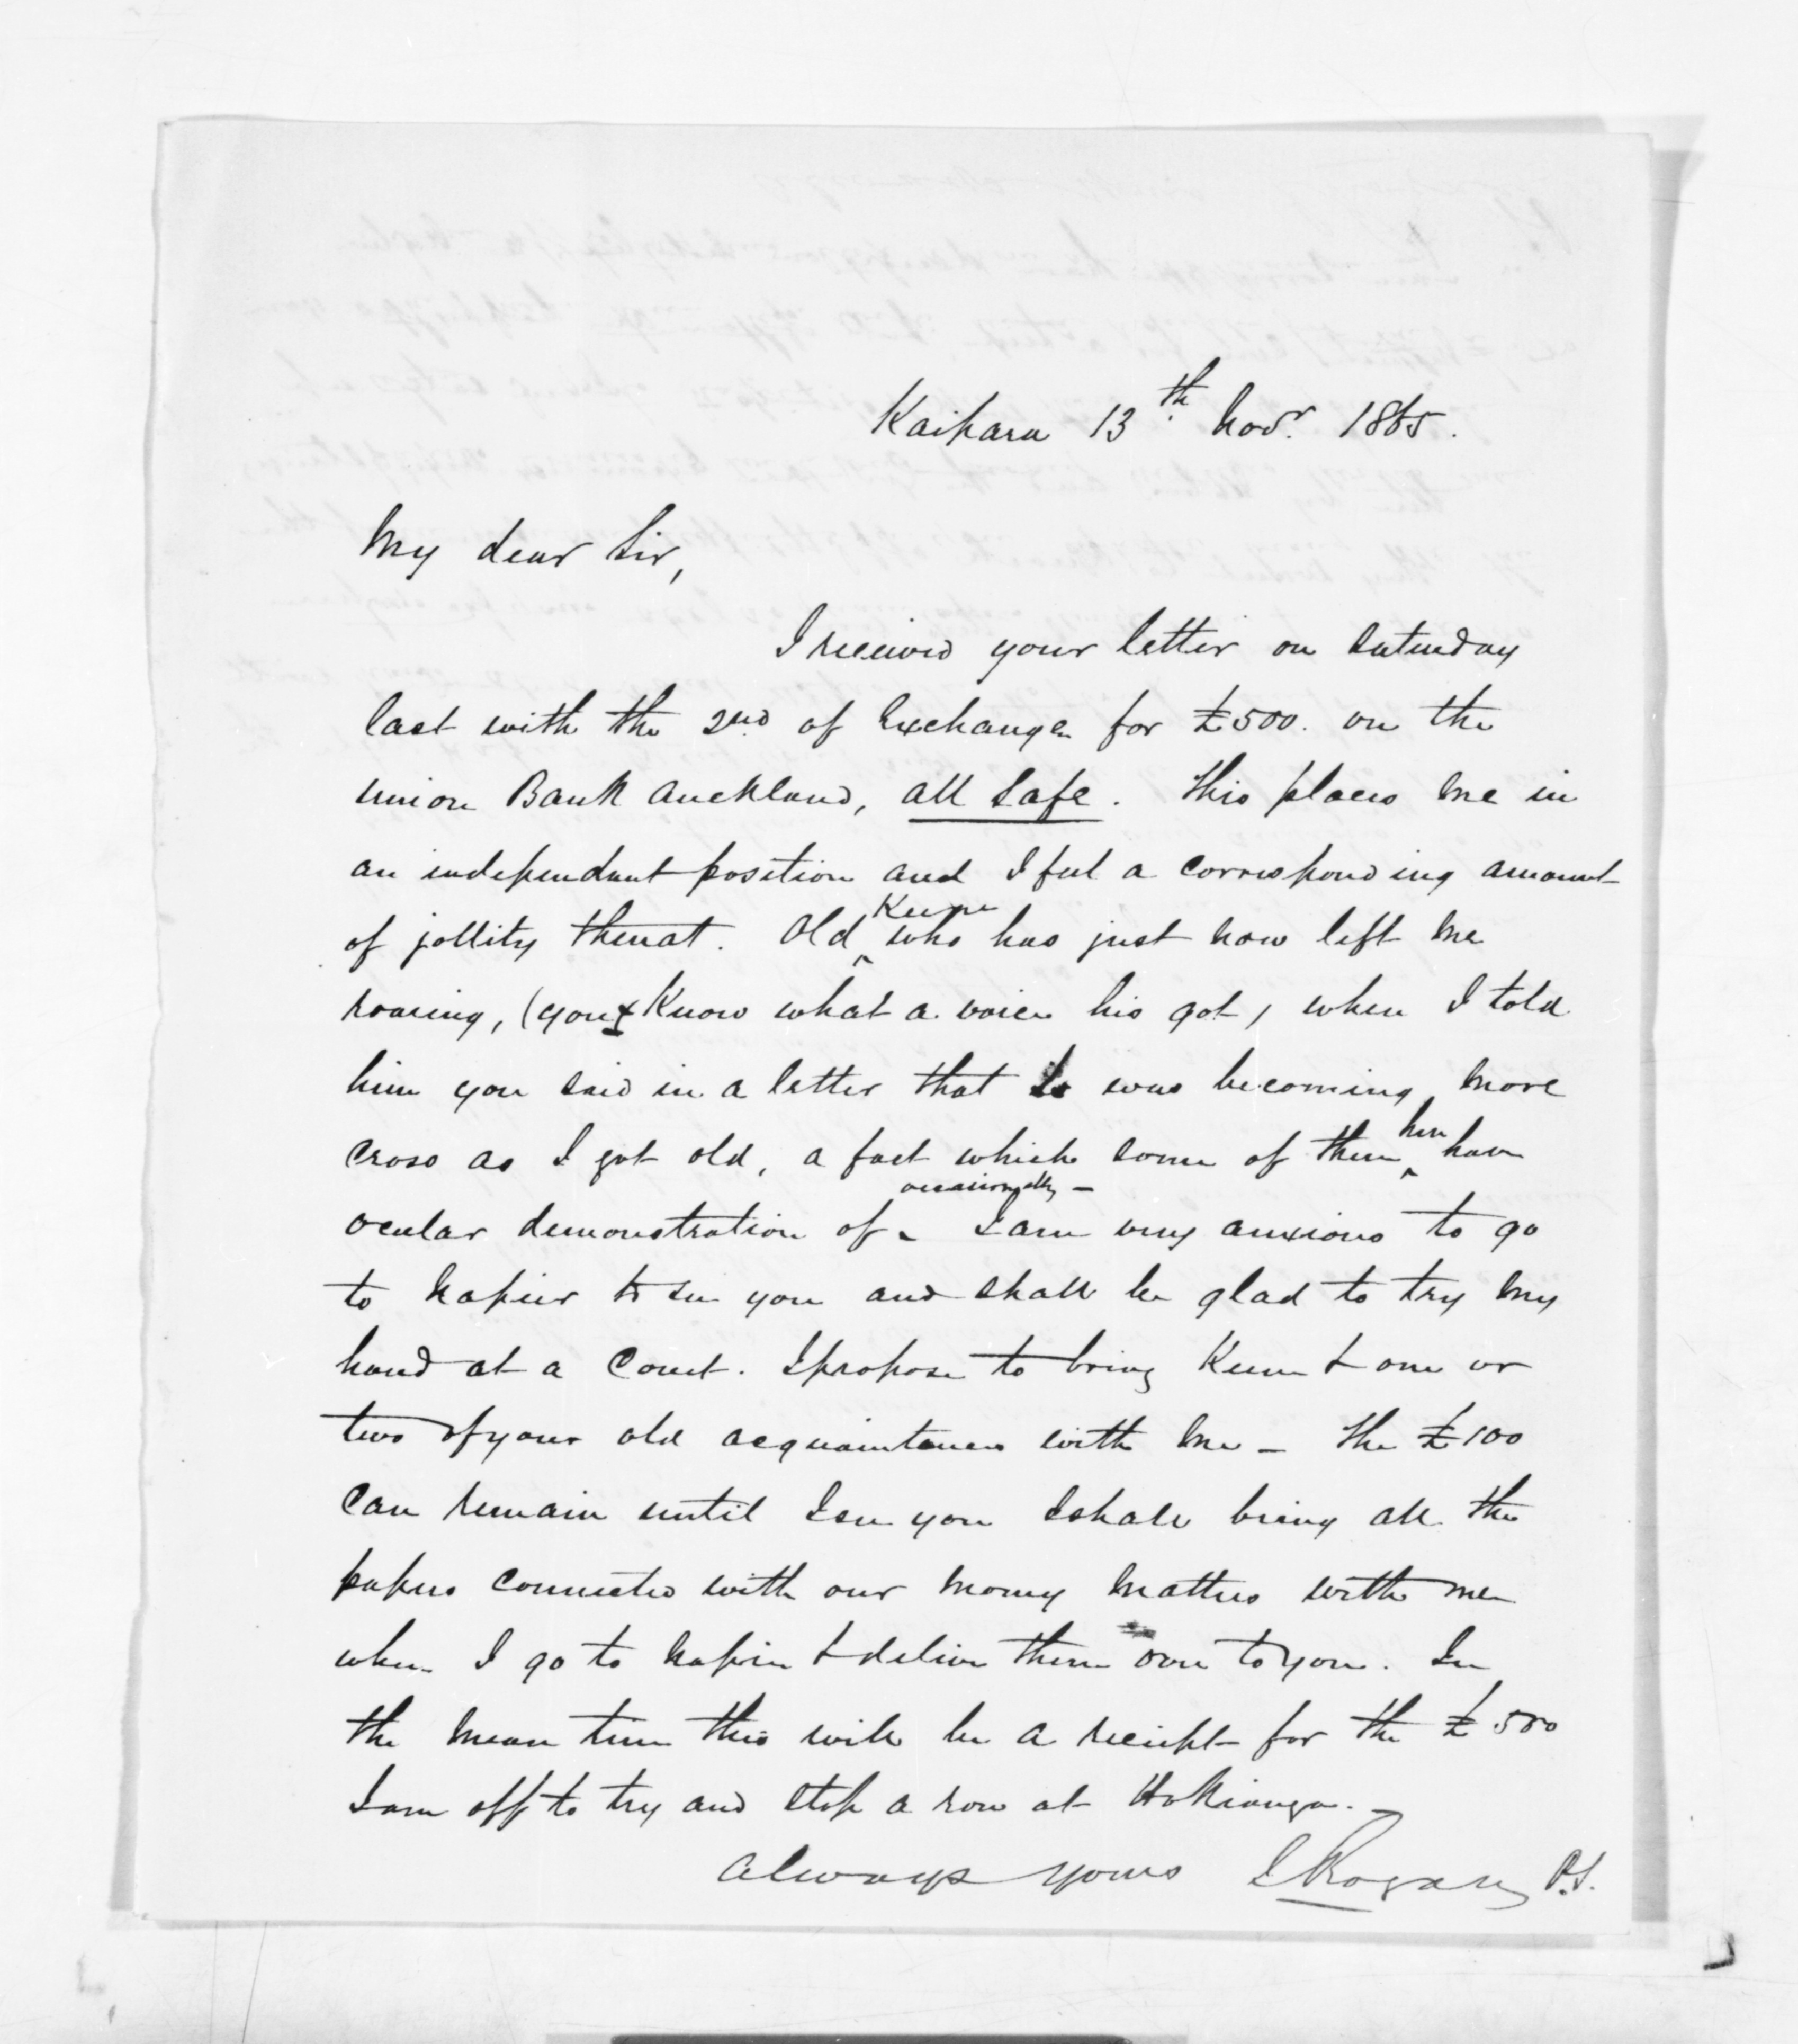 Kaipara 13th Novr. 1865.
My dear Sir,
I received your letter on Saturday
last with the 2nd of Exchange for £500. on the
Union Bank Auckland, all safe. This places me in
an independent position and I feel a corresponding amount
of jollity thereat. Old Keene who has just now left me
roaring, (you know what a voice his got) when I told
him you said in a letter that I was becoming more
cross as I got old, a fact which some of them here have
ocular demonstration of occasionally - I am very anxious to go
to Napier to see you and shall be glad to try my
hand at a Court. I propose to bring Keene & one or
two of your old acquaintances with me - The £100
can remain until I see you I shall bring all the
papers connected with our money matters with me
when I go to Napier & deliver them over to you. In
the mean time this will be a receipt for the £500
I am off to try and stop a row at Hokianga.
Always yours J Rogan P.S.